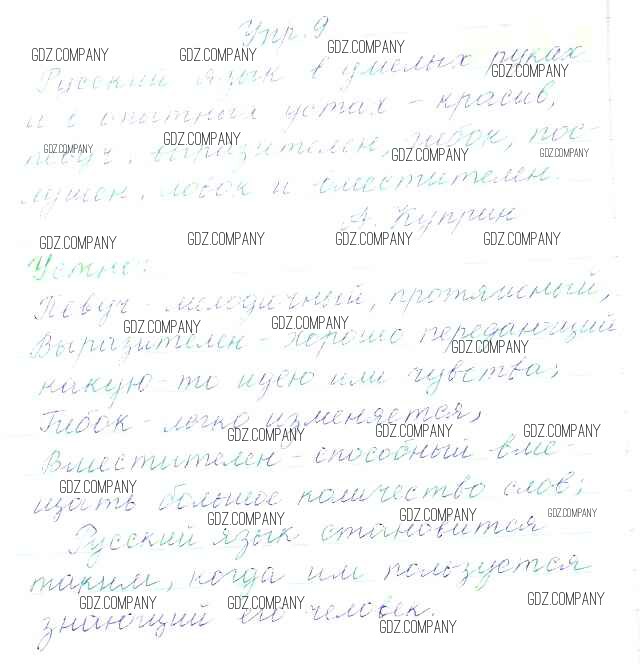 Упр. 9
GDZ.COMPANY GDZ.COMPANY GDZ.COMPANY
Русский язык в умелых руках
GDZ.COMPANY
и в опытных устах - красив,
GDZ.COMPANY GDZ.COMPANY GDZ.COMPANY GDZ.COMPANY
певуч, выразителен, гибок, пос-
лушен, ловок и вместителен.
А. Куприн
GDZ.COMPANY GDZ.COMPANY GDZ.COMPANY GDZ.COMPANY
Устно:
Певуч - мелодичный, протяжный,
GDZ.COMPANY GDZ.COMPANY
Выразителен - хорошо передающий
GDZ.COMPANY
какую-то идею или чувства;
Гибок - легко изменяется,
GDZ.COMPANY GDZ.COMPANY GDZ.COMPANY
Вместителен - способный вме-
GDZ.COMPANY
щать большое количество слов;
GDZ.COMPANY GDZ.COMPANY GDZ.COMPANY
Русский язык становится
таким, когда им пользуется
GDZ.COMPANY GDZ.COMPANY GDZ.COMPANY
знающий его человек.
GDZ.COMPANY